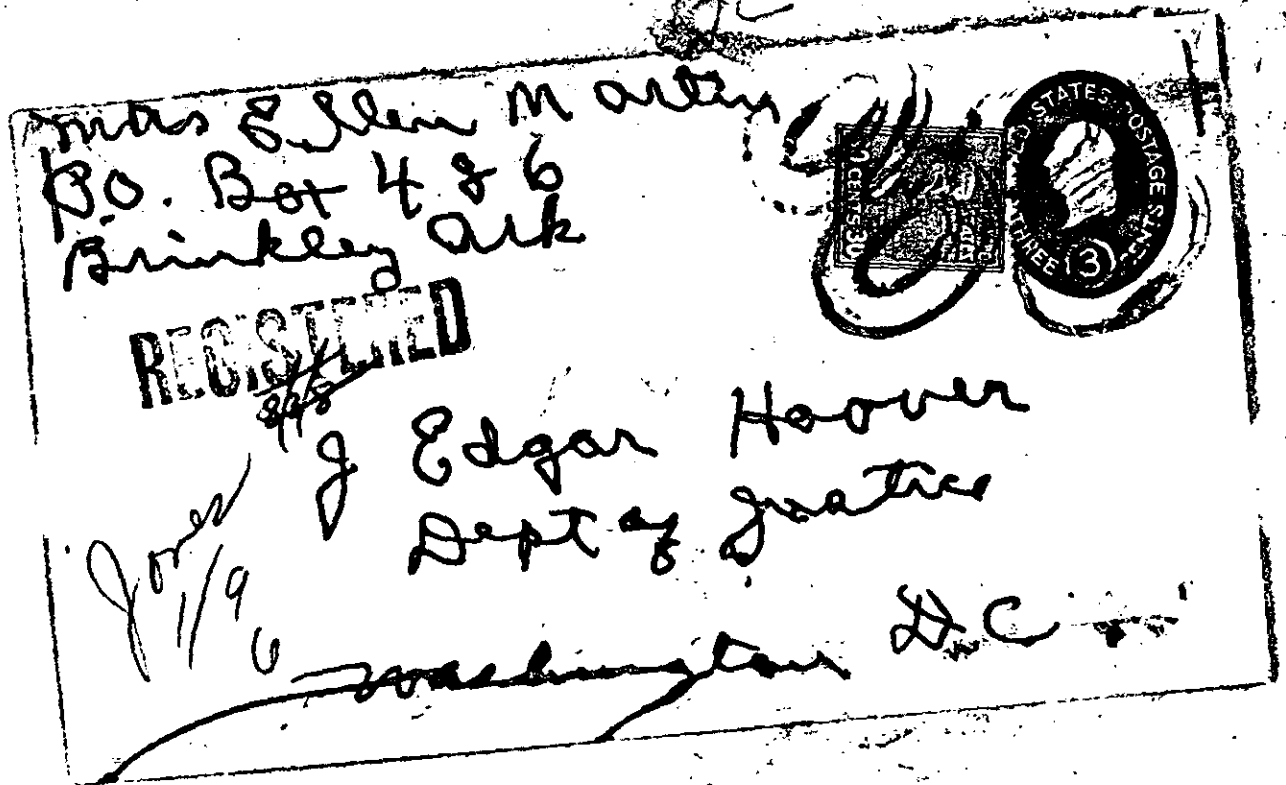 Mrs Ellen Martin
P.O. Box 486
Brinkley Ark
3 CENTS 3
UNITED STATES POSTAGE
THREE 3 CENTS
REGISTERED
J Edgar Hoover
Dept of Justice
Washington D.C
Jones
1/9